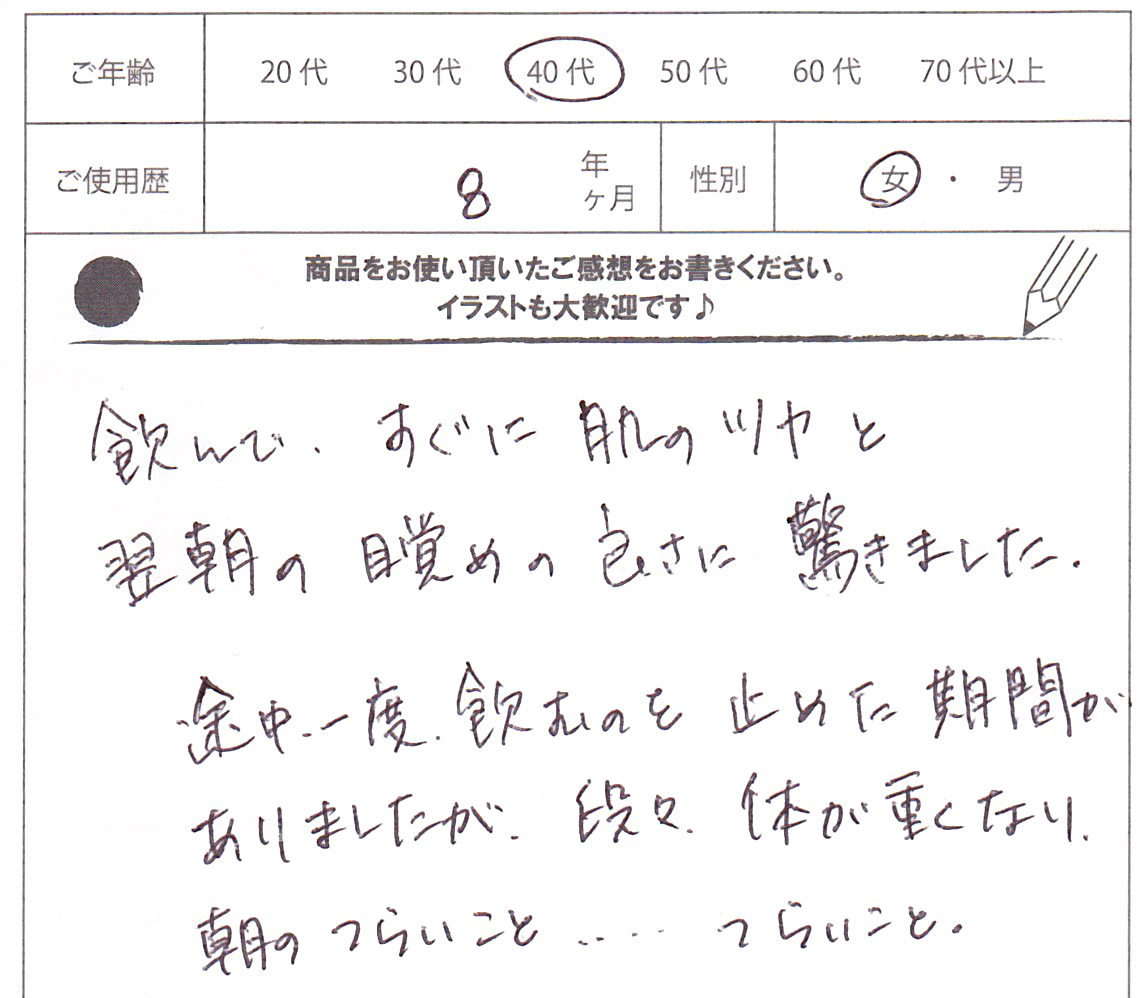 ご年齢 20代 30代 40代 50代 60代 70代以上
ご使用歴 8 年 ヶ月 性別 女・男
商品をお使い頂いたご感想をお書きください。
イラストも大歓迎です♪
飲んで、すぐに肌のツヤと
翌朝の目覚めの良さに驚きました。
途中、一度、飲むのを止めた期間が
ありましたが、段々、体が重くなり、
朝のつらいこと‥‥つらいこと。